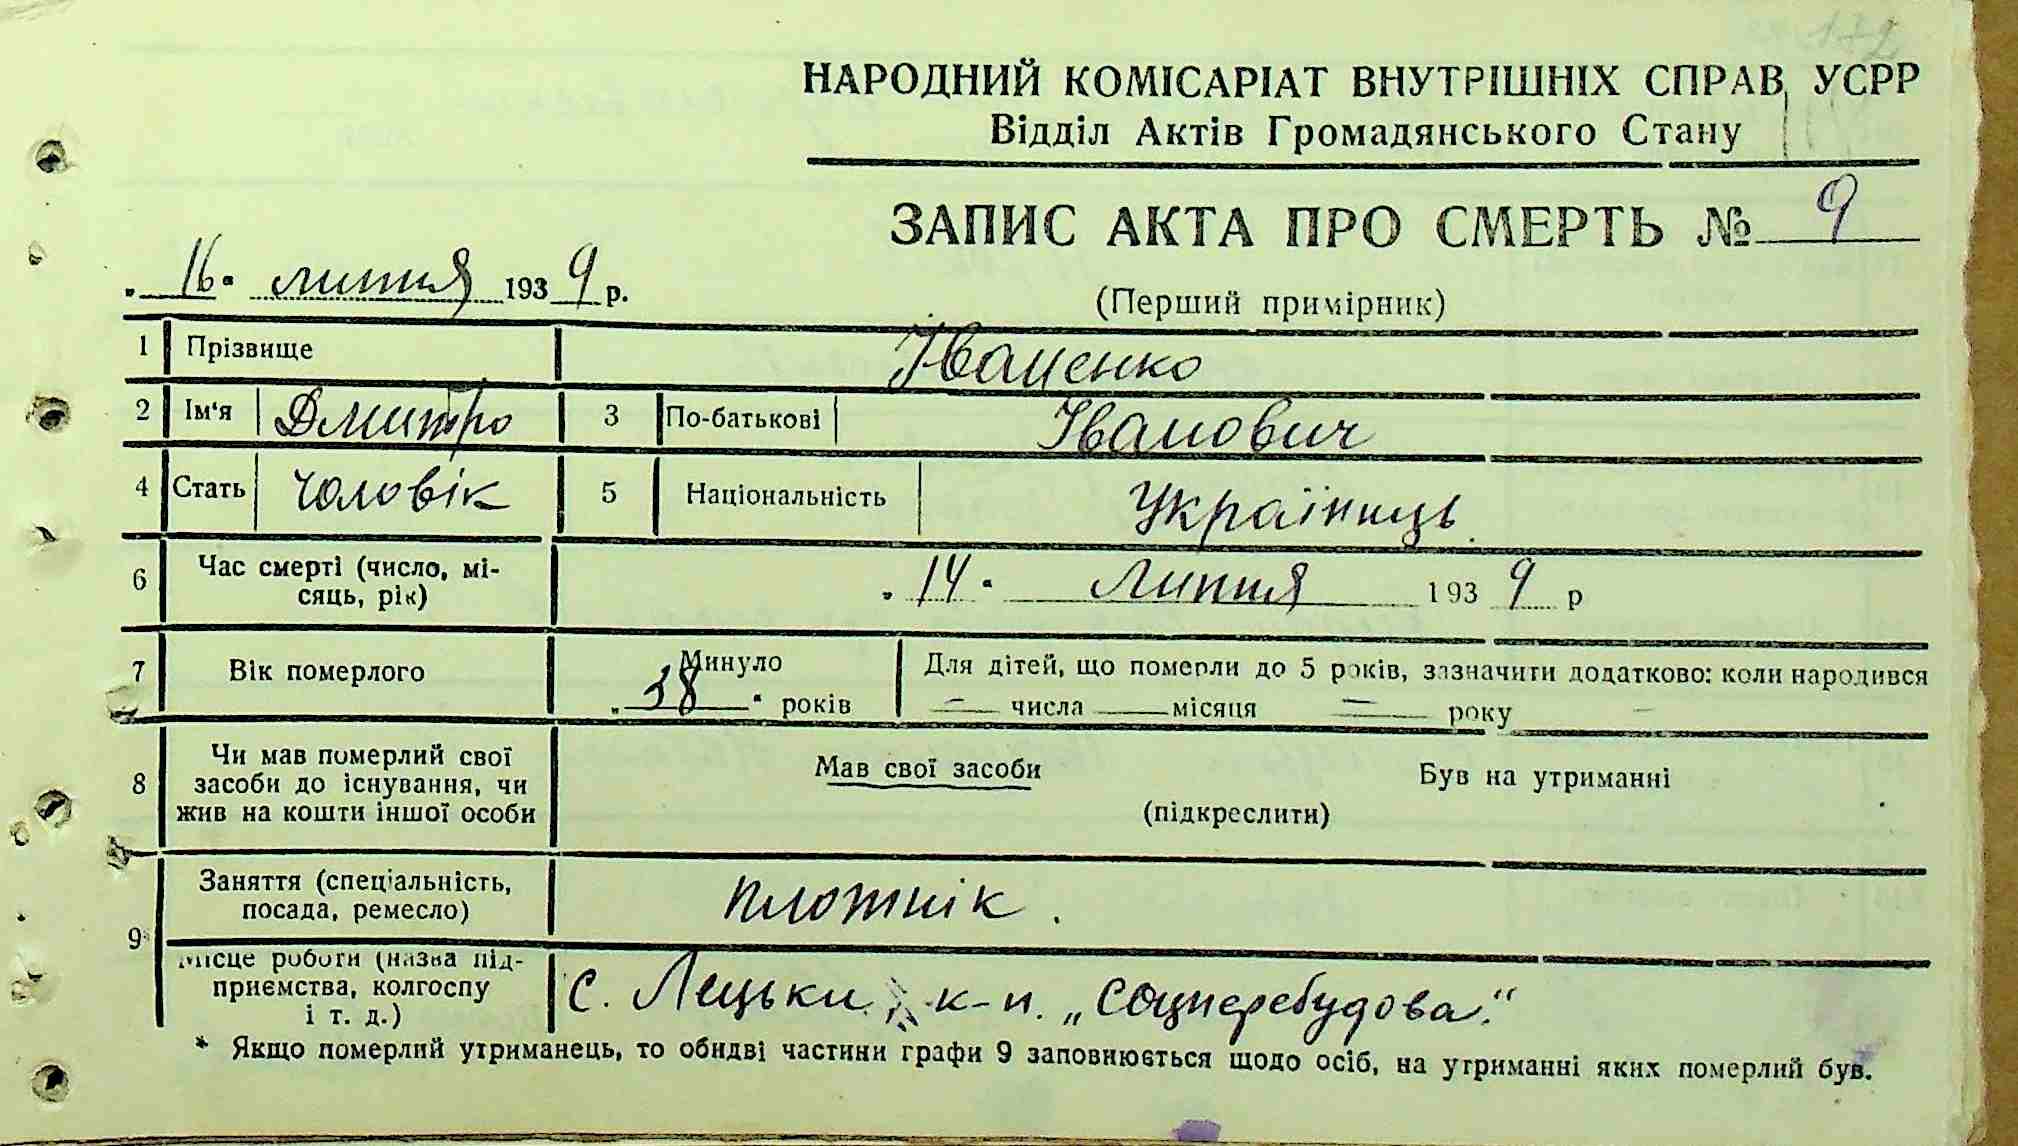 НАРОДНИЙ КОМІСАРІАТ ВНУТРІШНІХ СПРАВ УСРР
Відділ Актів Громадянського Стану
ЗАПИС АКТА ПРО СМЕРТЬ № 9
„16" липня 1939 р.
(Перший примірник)
1 Прізвище Іваненко
2 Ім'я Дмитро 3 По-батькові Іванович
4 Стать чоловік 5 Національність Українець
6 Час смерті (число, мі-
сяць, рік) „14" липня 1939 р
7 Вік померлого Минуло
„38" років
Для дітей, що померли до 5 років, зазначити додатково: коли народився
— числа — місяця — року
8 Чи мав померлий свої
засоби до існування, чи
жив на кошти іншої особи
Мав свої засоби Був на утриманні
(підкреслити)
9 Заняття (спеціальність,
посада, ремесло) плотнік.
Місце роботи (назва під-
приємства, колгоспу
і т. д.) с. Лецьки, к-п. „Соцперебудова."
* Якщо померлий утриманець, то обидві частини графи 9 заповнюється щодо осіб, на утриманні яких померлий був.